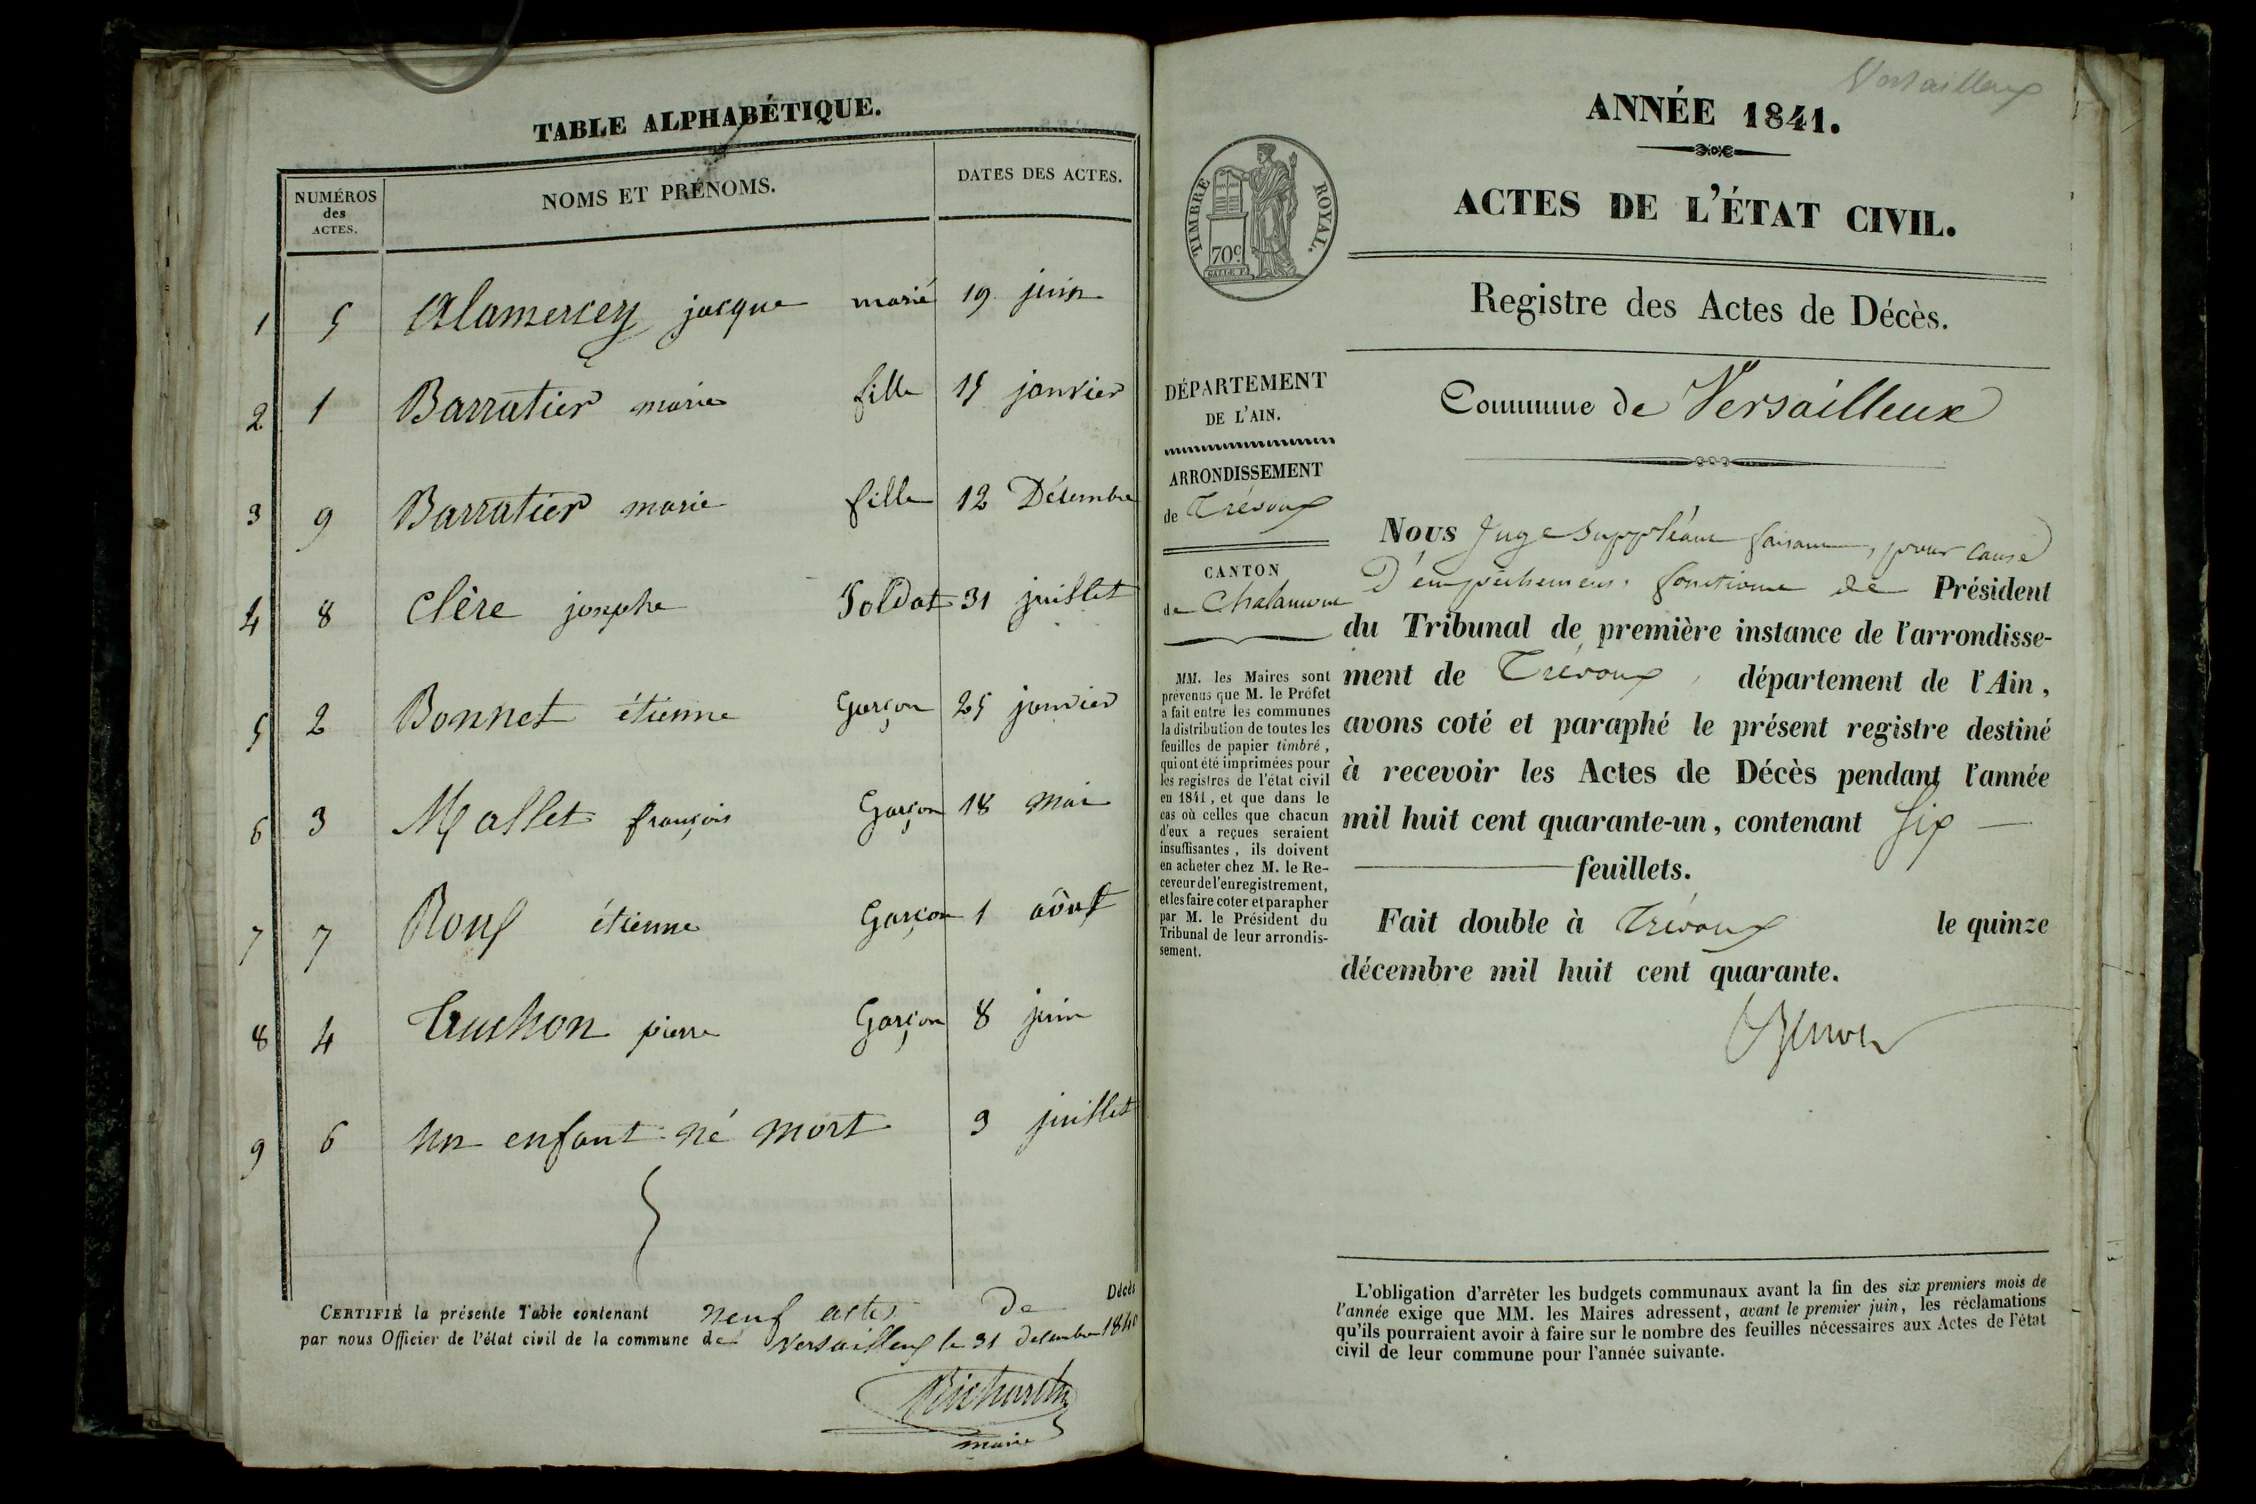 TABLE ALPHABÉTIQUE.
NUMÉROS des ACTES. NOMS ET PRÉNOMS. DATES DES ACTES.
1 5 Alamercey jacque marié 19 juin
2 1 Barratier marie fille 15 janvier
3 9 Barratier marie fille 12 Décembre
4 8 Clère josephe Soldat 31 juillet
5 2 Bonnet étienne Garçon 25 janvier
6 3 Mallet françois Garçon 18 mai
7 7 Roux étienne Garçon 1 août
8 4 Truchon pierre Garçon 8 juin
9 6 un enfant né mort 3 juillet
CERTIFIÉ la présente Table contenant neuf actes de Décès
par nous Officier de l'état civil de la commune de Versailleux le 31 decembre 1840
maire
Versailleux
ANNÉE 1841.
ACTES DE L'ÉTAT CIVIL.
TIMBRE ROYAL.
70c.
Registre des Actes de Décès.
Commune de Versailleux
DÉPARTEMENT
DE L'AIN.
ARRONDISSEMENT
de Trévoux
CANTON
de Chalamont
MM. les Maires sont
prévenus que M. le Préfet
a fait entre les communes
la distribution de toutes les
feuilles de papier timbré,
qui ont été imprimées pour
les registres de l'état civil
en 1841, et que dans le
cas où celles que chacun
d'eux a reçues seraient
insuffisantes, ils doivent
en acheter chez M. le Re-
ceveur de l'enregistrement,
et les faire coter et parapher
par M. le Président du
Tribunal de leur arrondis-
sement.
Nous Juge suppléant faisant, pour cause
D'empêchement, fonctions de Président
du Tribunal de première instance de l'arrondisse-
ment de Trévoux, département de l'Ain,
avons coté et paraphé le présent registre destiné
à recevoir les Actes de Décès pendant l'année
mil huit cent quarante-un, contenant six
feuillets.
Fait double à Trévoux le quinze
décembre mil huit cent quarante.
L'obligation d'arrêter les budgets communaux avant la fin des six premiers mois de
l'année exige que MM. les Maires adressent, avant le premier juin, les réclamations
qu'ils pourraient avoir à faire sur le nombre des feuilles nécessaires aux Actes de l'état
civil de leur commune pour l'année suivante.